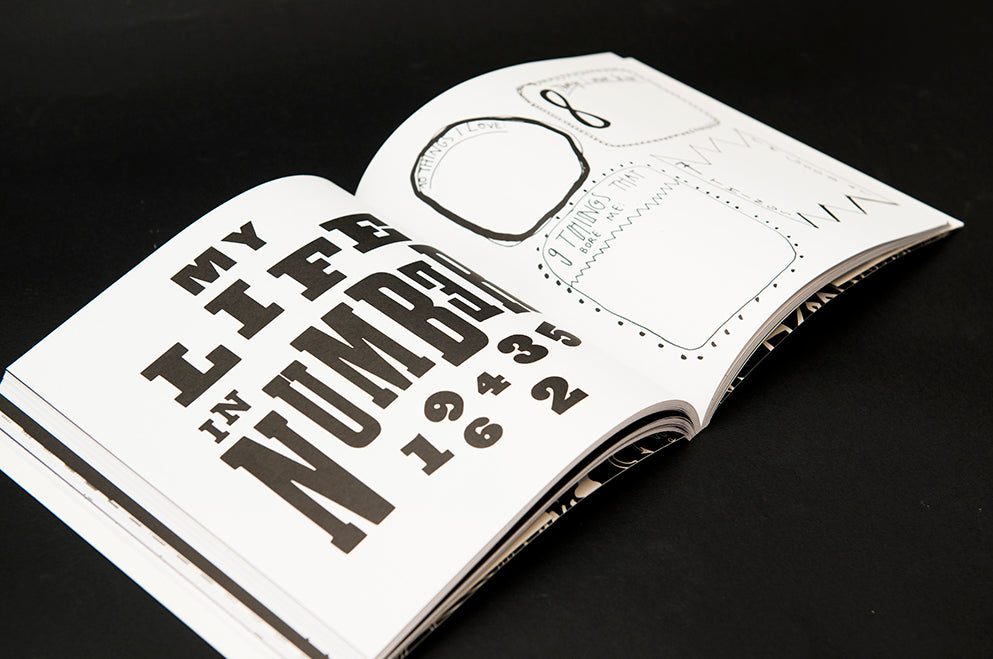 MY
LIFE
IN
NUMBER
1 9 4 3 5
6 2
10 THINGS I LOVE.
8
9 THINGS THAT
BORE ME.
7